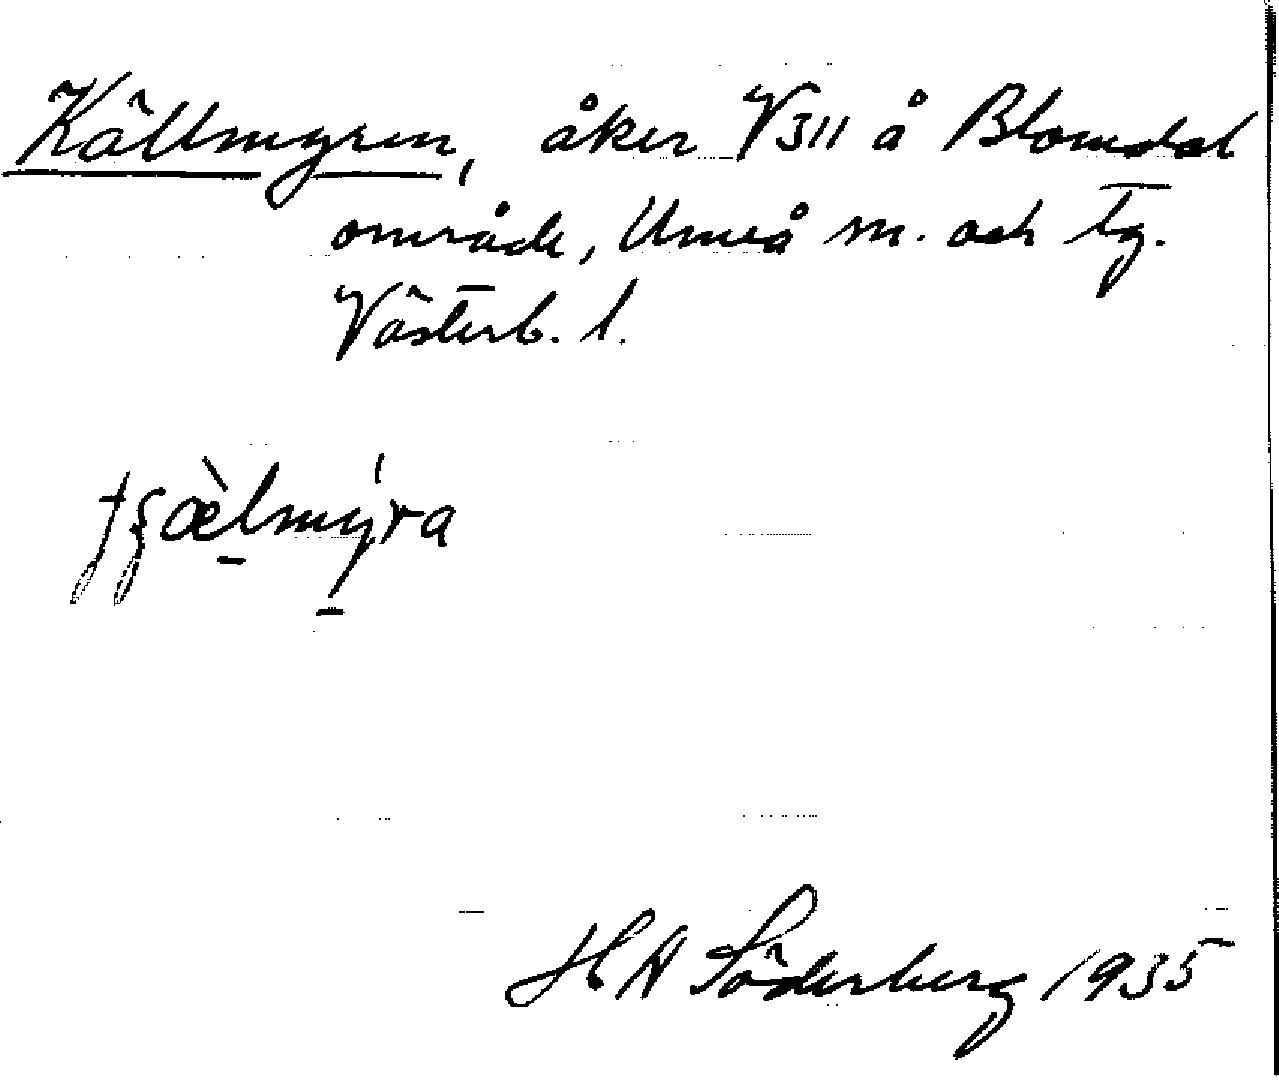 Källmyren, åker V311 å Blomdal
område, Umeå m. och tg.
Västerb. l.
H A Söderberg 1935